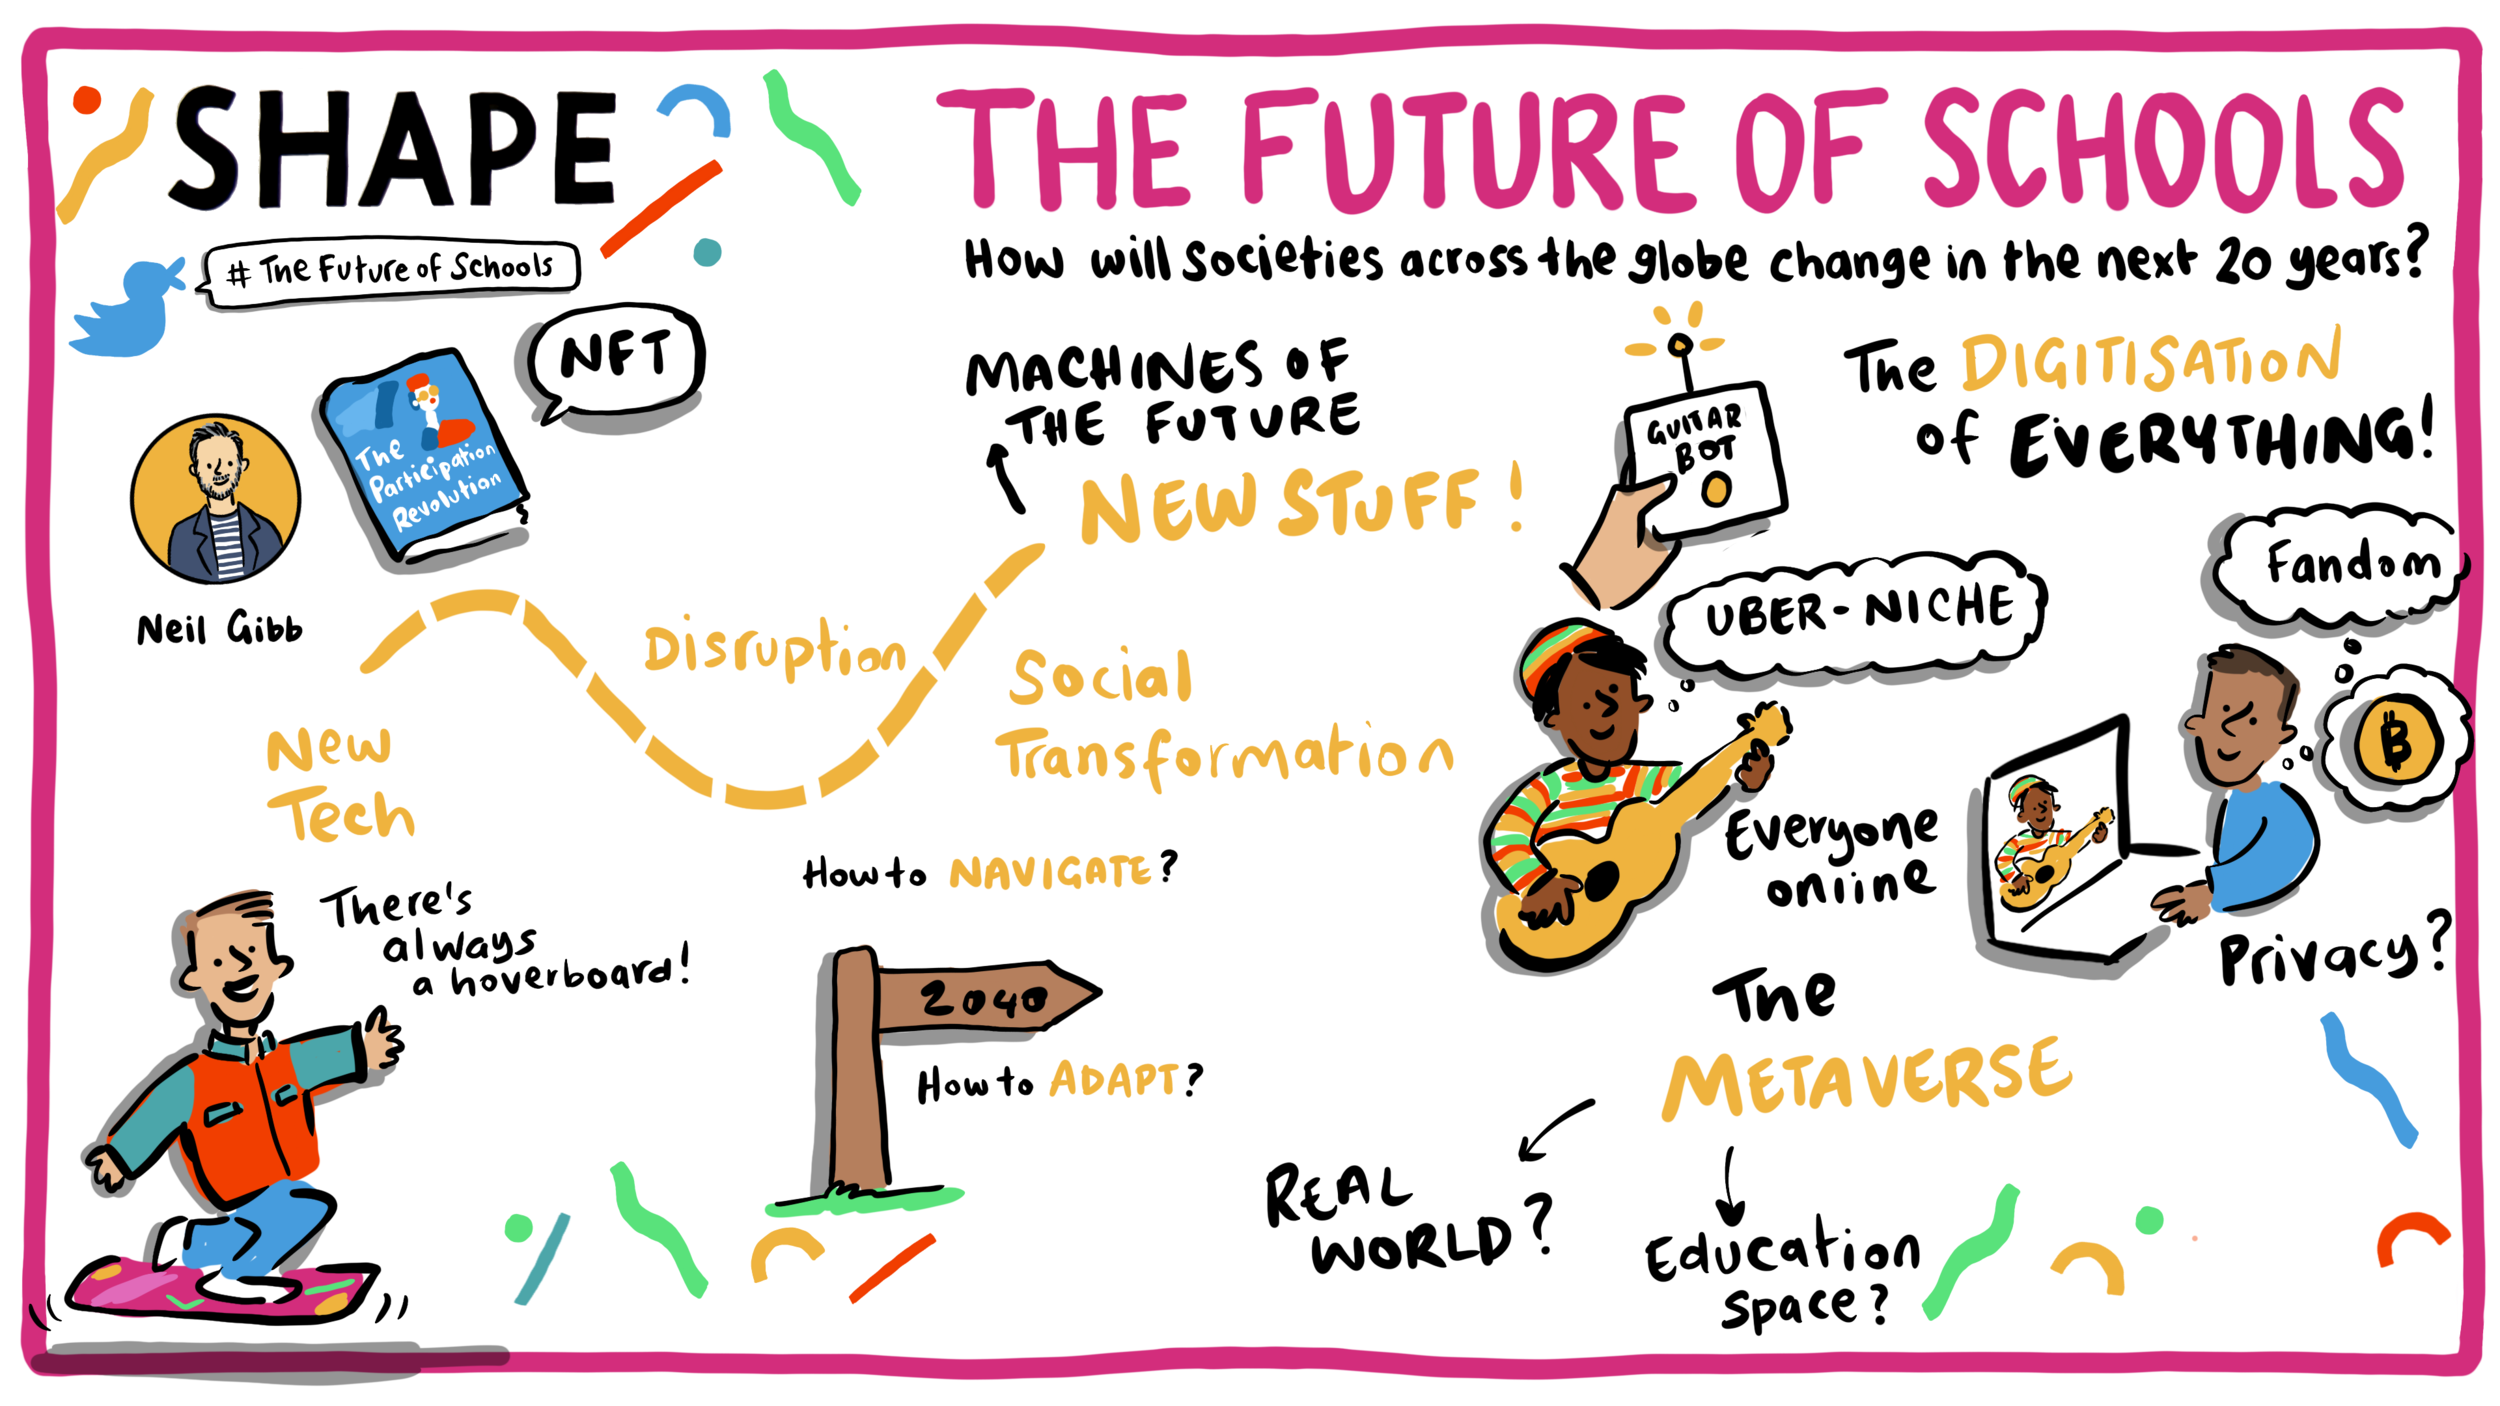 SHAPE
THE FUTURE OF SCHOOLS
How will Societies across the globe change in the next 20 years?
# The Future of Schools
NFT
The
Participation
Revolution
Neil Gibb
MACHINES OF
THE FUTURE
NEW STUFF!
GUITAR
BOT
The DIGITISATION
of EVERYTHING!
Fandom
UBER-NICHE
Disruption
Social
Transformation
New
Tech
How to NAVIGATE?
There's
always
a hoverboard!
2040
How to ADAPT?
Everyone
online
฿
Privacy?
The
METAVERSE
REAL
WORLD?
Education
space?